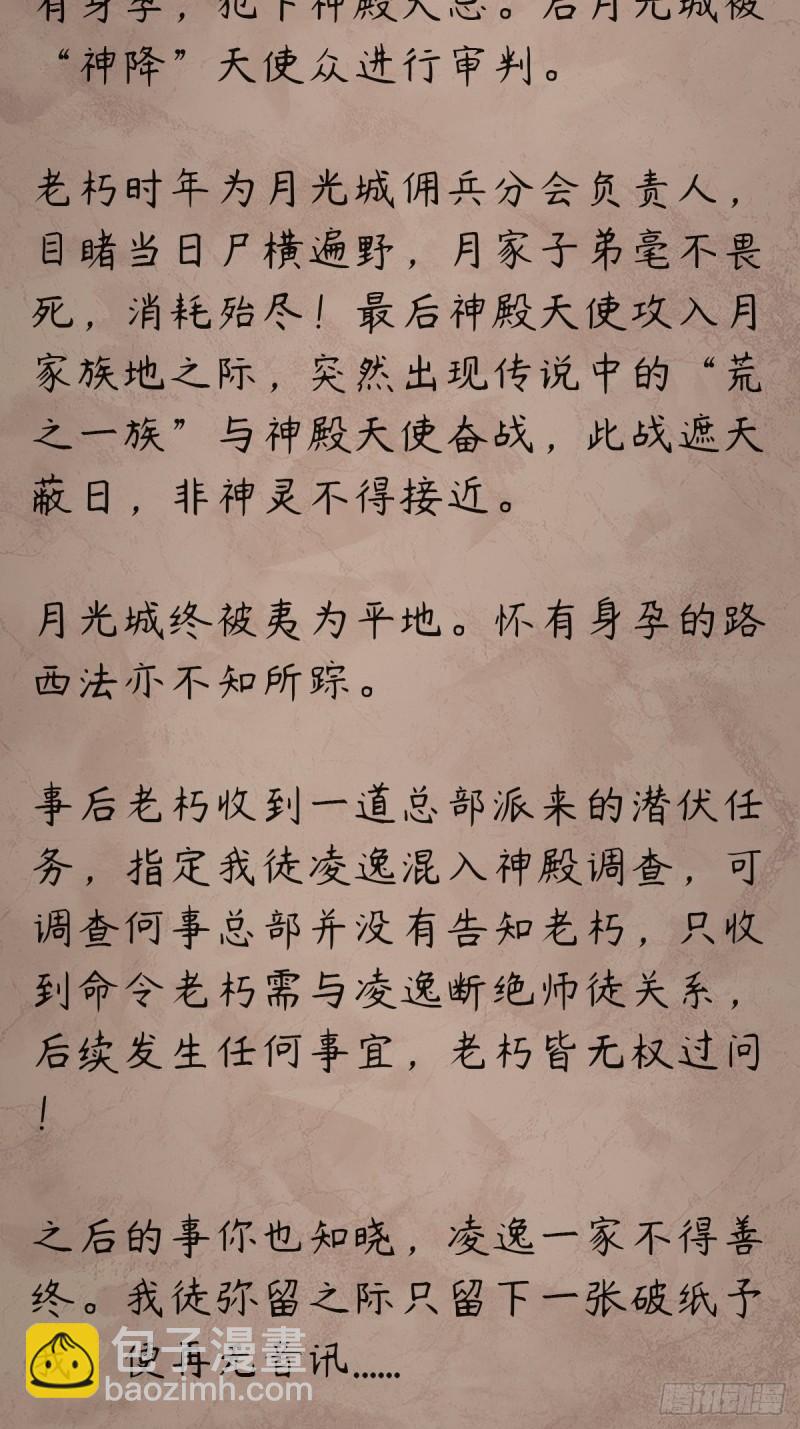 有身孕，犯下神殿大忌。后月光城被
“神降”天使众进行审判。
老朽时年为月光城佣兵分会负责人，
目睹当日尸横遍野，月家子弟毫不畏
死，消耗殆尽！最后神殿天使攻入月
家族地之际，突然出现传说中的“荒
之一族”与神殿天使奋战，此战遮天
蔽日，非神灵不得接近。
月光城终被夷为平地。怀有身孕的路
西法亦不知所踪。
事后老朽收到一道总部派来的潜伏任
务，指定我徒凌逸混入神殿调查，可
调查何事总部并没有告知老朽，只收
到命令老朽需与凌逸断绝师徒关系，
后续发生任何事宜，老朽皆无权过问
！
之后的事你也知晓，凌逸一家不得善
终。我徒弥留之际只留下一张破纸予
我，便再无音讯……
包子漫畫
baozimh.com
腾讯动漫